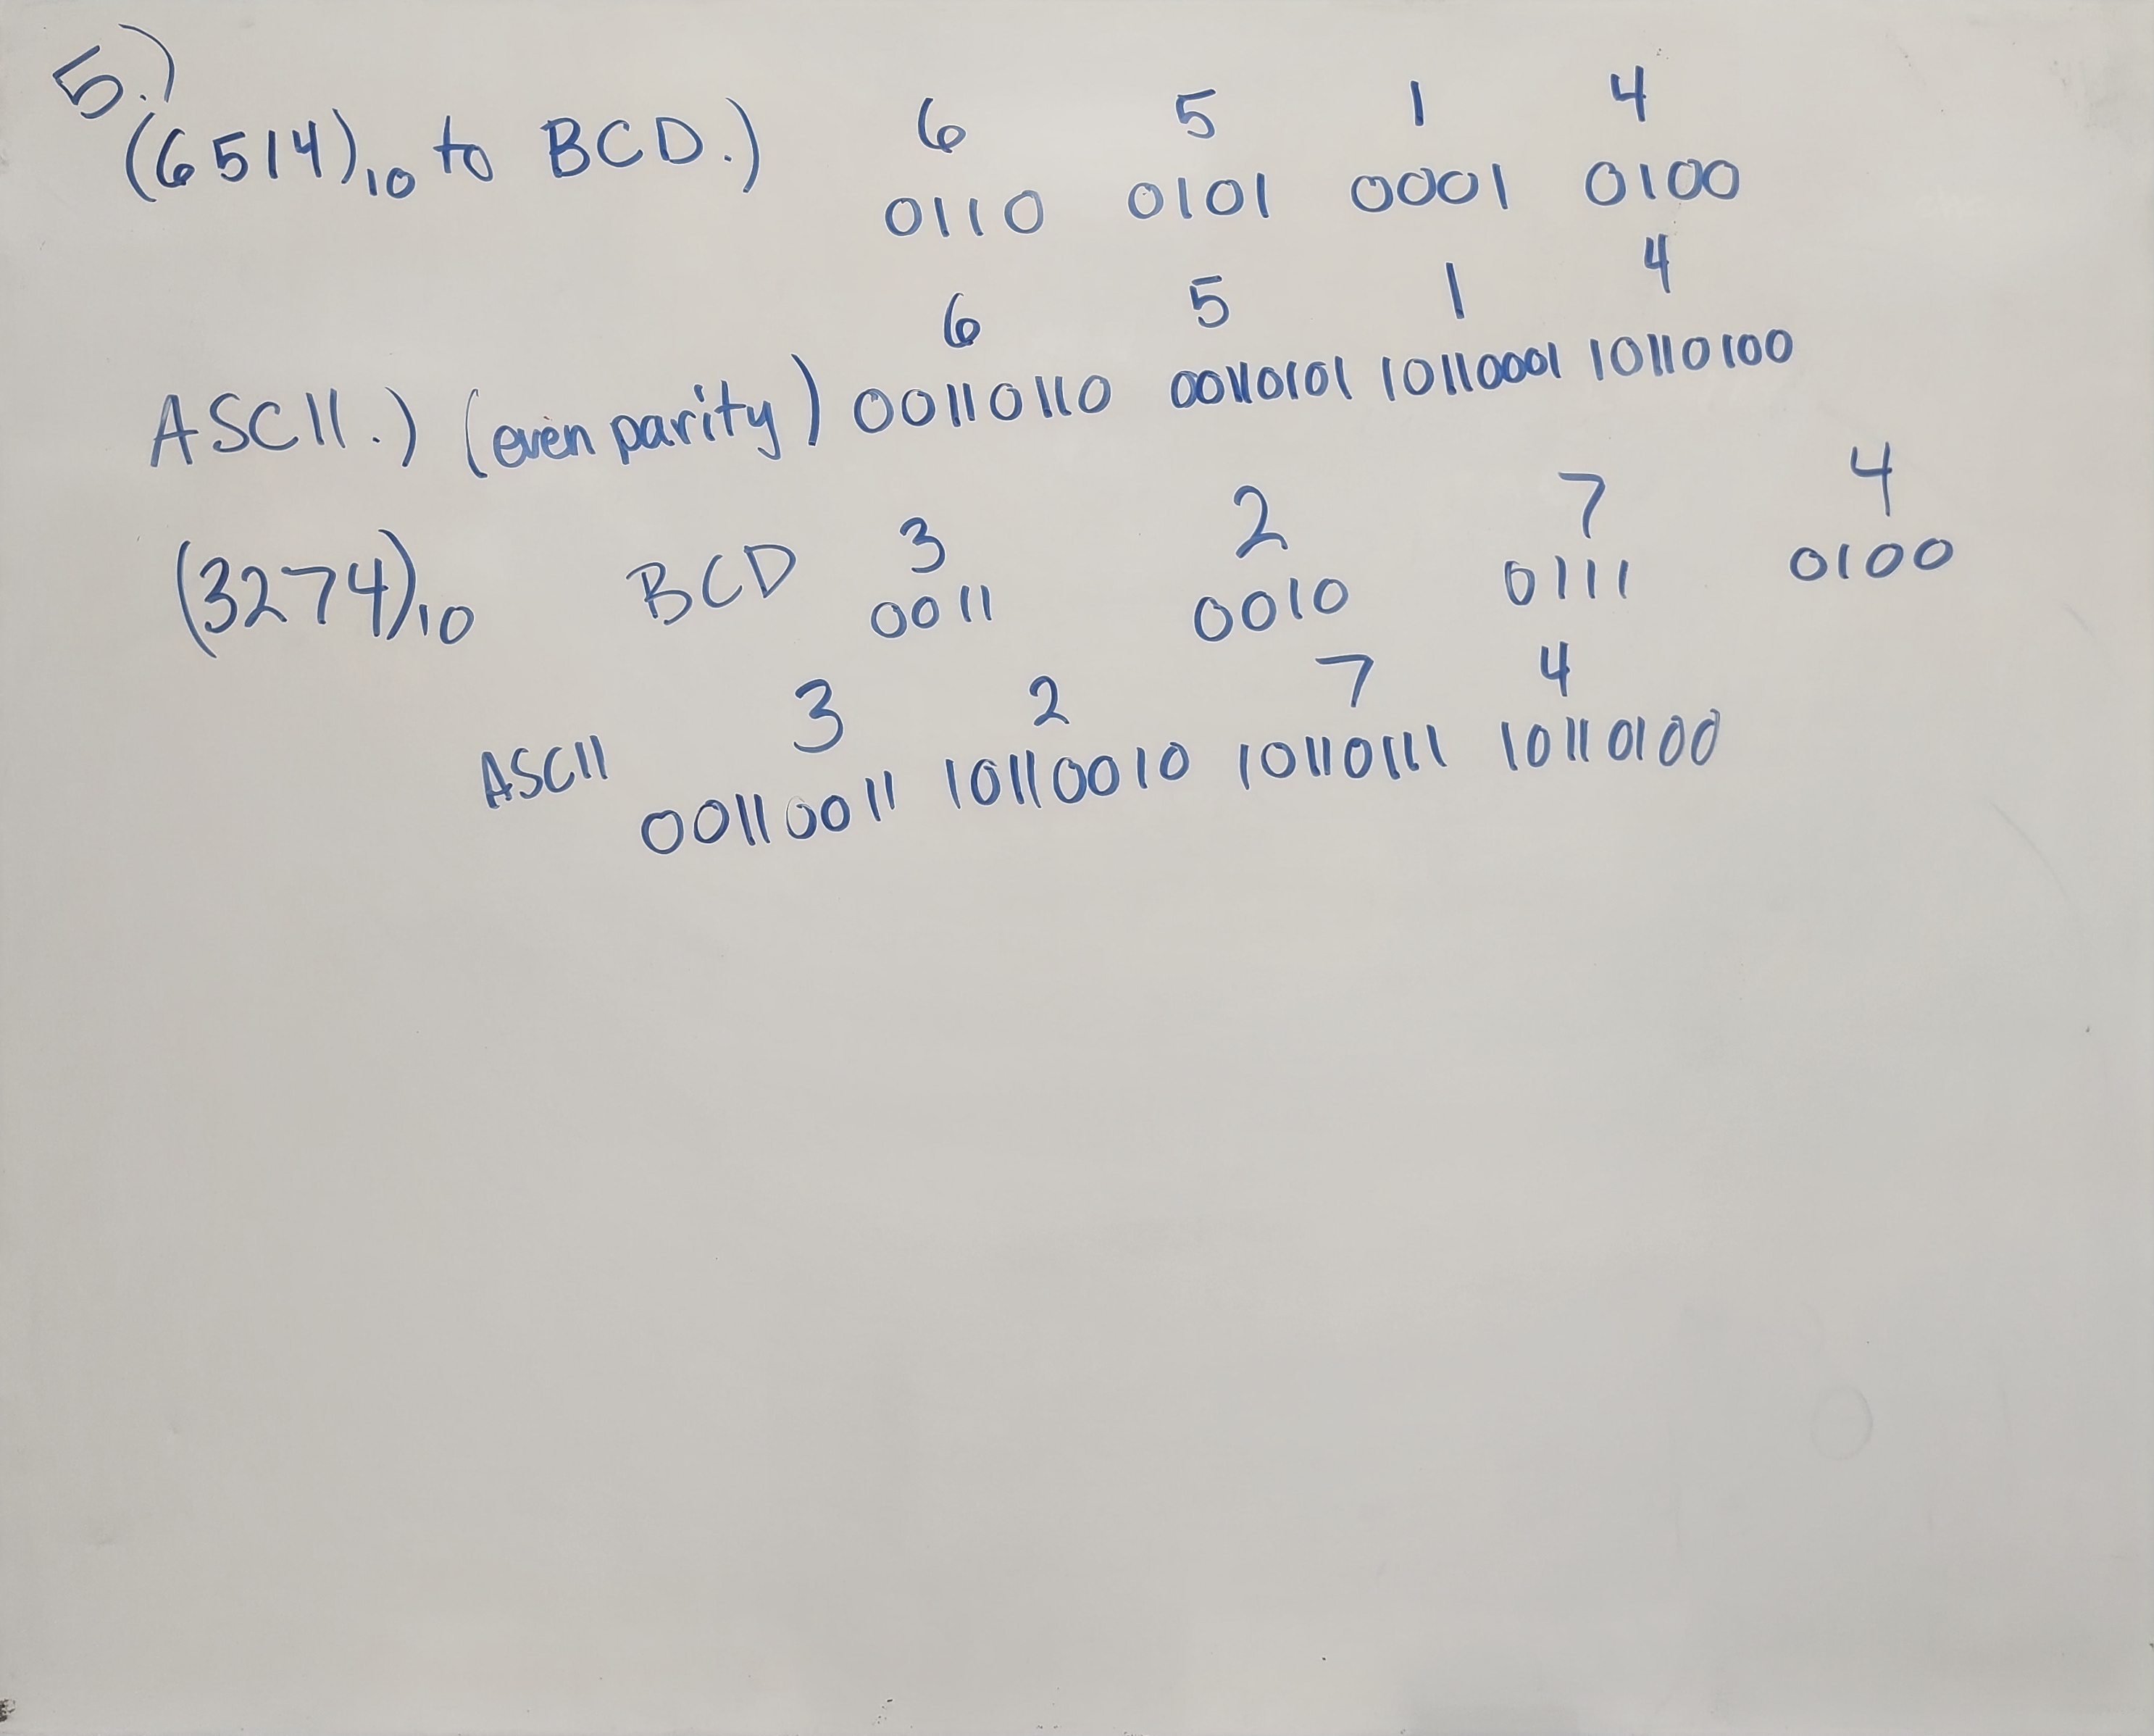 5.)
(6514)10 to BCD.) 6 5 1 4
0110 0101 0001 0100
6 5 1 4
ASCII.) (even parity) 00110110 00110101 10110001 10110100
3 2 7 4
(3274)10 BCD 0011 0010 0111 0100
3 2 7 4
ASCII 00110011 10110010 10110111 10110100